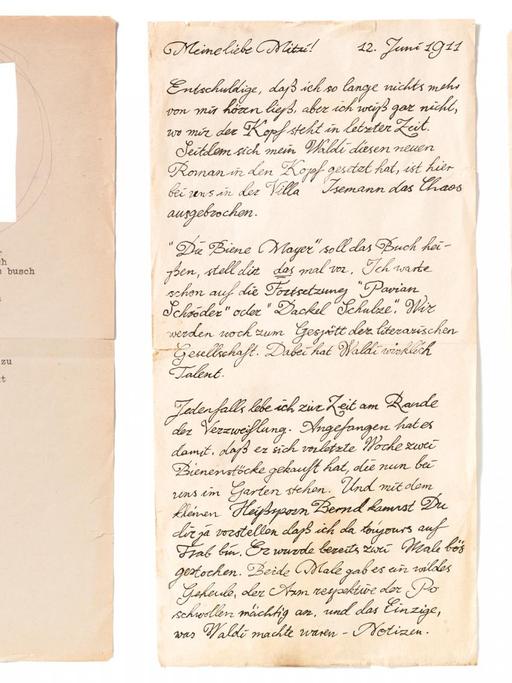 ch
s busch
zu
t
Meine liebe Mitzi! 12. Juni 1911
Entschuldige, daß ich so lange nichts mehr
von mir hören ließ, aber ich weiß gar nicht,
wo mir der Kopf steht in letzter Zeit.
Seitdem sich mein Waldi diesen neuen
Roman in den Kopf gesetzt hat, ist hier
bei uns in der Villa Isemann das Chaos
ausgebrochen.
"Die Biene Mayer" soll das Buch hei-
ßen, stell dir das mal vor. Ich warte
schon auf die Fortsetzung "Pavian
Schröder" oder "Dackel Schulze". Wir
werden noch zum Gespött der literarischen
Gesellschaft. Dabei hat Waldi wirklich
Talent.
Jedenfalls lebe ich zur Zeit am Rande
der Verzweiflung. Angefangen hat es
damit, daß er sich vorletzte Woche zwei
Bienenstöcke gekauft hat, die nun bei
uns im Garten stehen. Und mit dem
kleinen Heißsporn Bernd kannst Du
dir ja vorstellen daß ich da toujours auf
Trab bin. Er wurde bereits zwei Male bös
gestochen. Beide Male gab es ein wildes
Geheule, der Arm respektive der Po
schwollen mächtig an, und das Einzige,
was Waldi machte waren - Notizen.